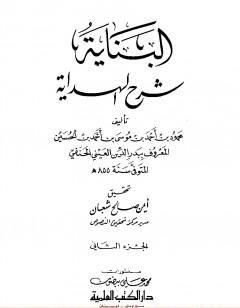 البناية
شرح الهداية
تأليف
محمود بن أحمد بن موسى بن أحمد بن الحسين
المعروف ببدر الدين العيني الحنفي
المتوفى سنة ٨٥٥ هـ
تحقيق
أيمن صالح شعبان
الجزء الثاني
منشورات
محمد علي بيضون
دار الكتب العلمية